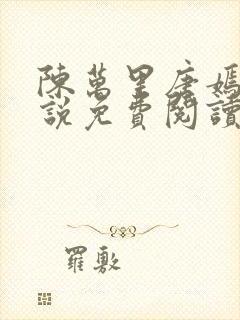 陳萬里唐嫣
說免費閱讀
羅敷